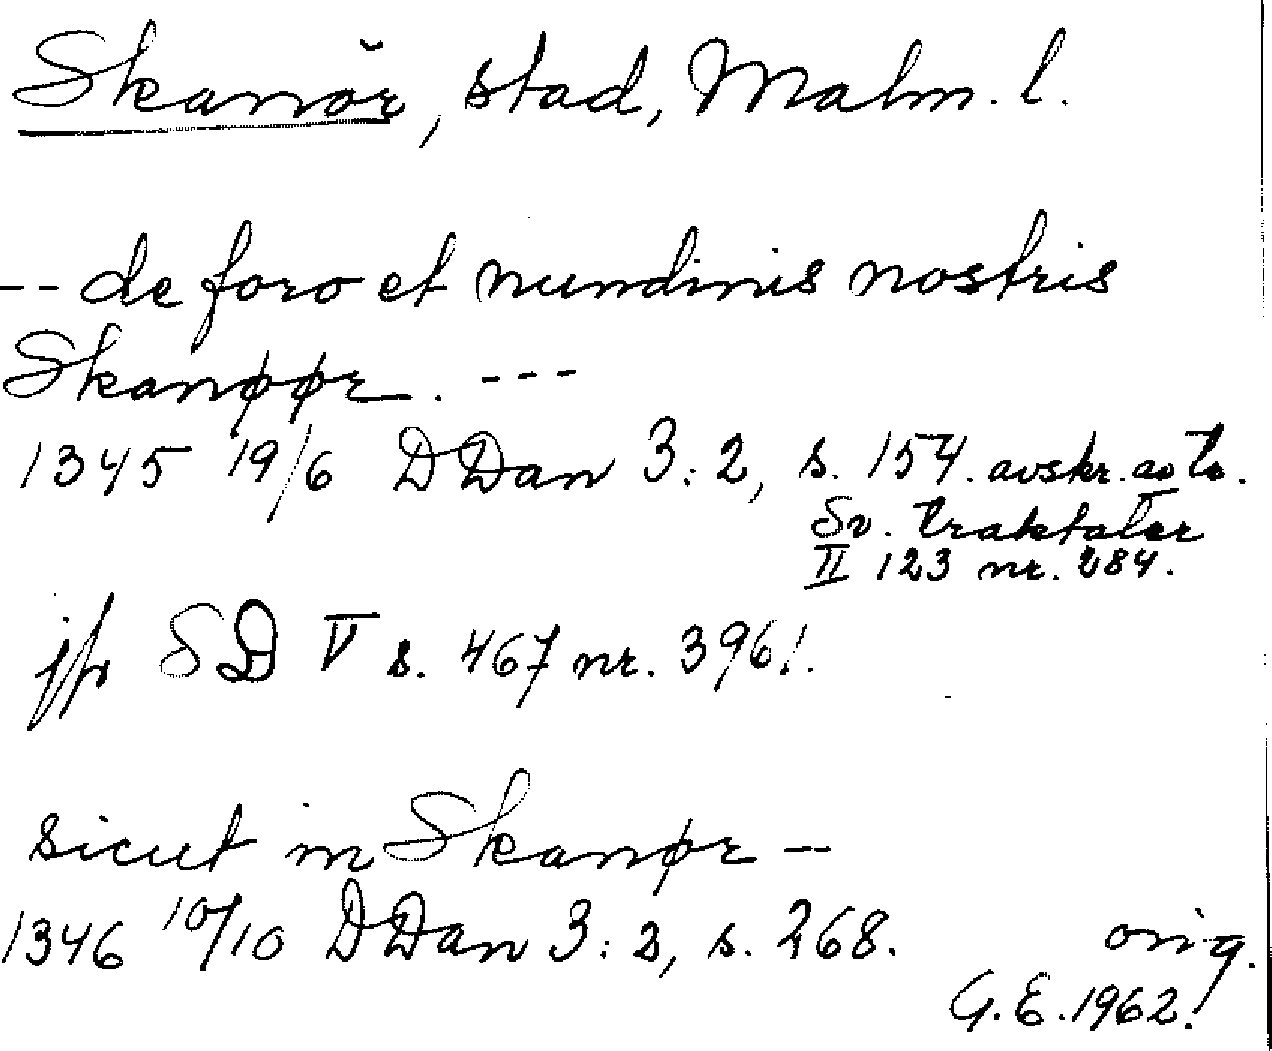 Skanör, stad, Malm. l.
-- de foro et nundinis nostris
Skanøør. ---
1345 19/6 DDan 3:2, s. 154. avskr.
Sv. traktater
II 123 nr. 284.
jfr SD V s. 467 nr. 3961.
sicut in Skanør --
1346 10/10 DDan 3:2, s. 268. orig.
G.E. 1962.